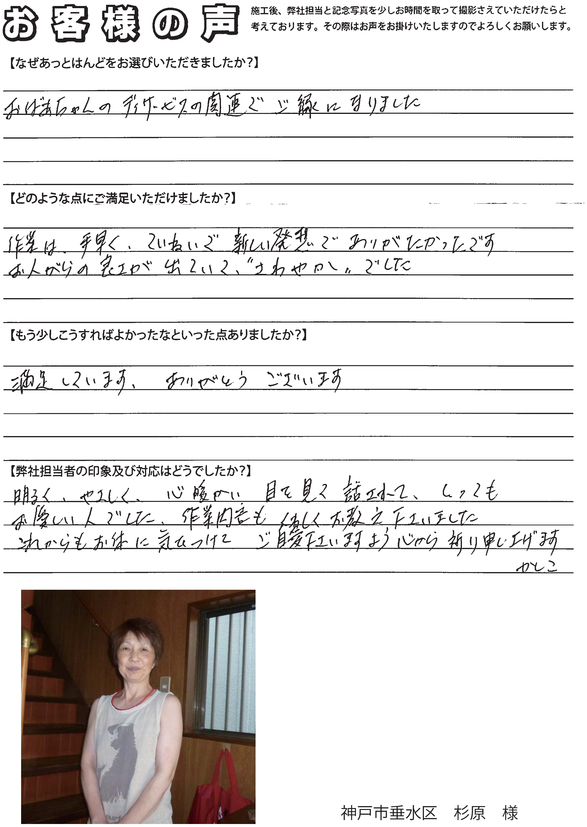 お客様の声
施工後、弊社担当と記念写真を少しお時間を取って撮影させていただけたらと
考えております。その際はお声をお掛けいたしますのでよろしくお願いします。
【なぜあっとはんどをお選びいただきましたか？】
おばあちゃんのディサービスの関連でご縁になりました
【どのような点にご満足いただけましたか？】
作業は、手早く、ていねいで新しい発想でありがたかったです
お人がらの良さが出ていて、"さわやかし"でした
【もう少しこうすればよかったなといった点ありましたか？】
満足しています、ありがとうございます
【弊社担当者の印象及び対応はどうでしたか？】
明るく、やさしく、心暖かい目を見て話されて、とっても
お優しい人でした、作業内容も詳しくお教え下さいました
これからもお体に気をつけてご自愛下さいますよう心から祈り申し上げます
かしこ
神戸市垂水区 杉原 様